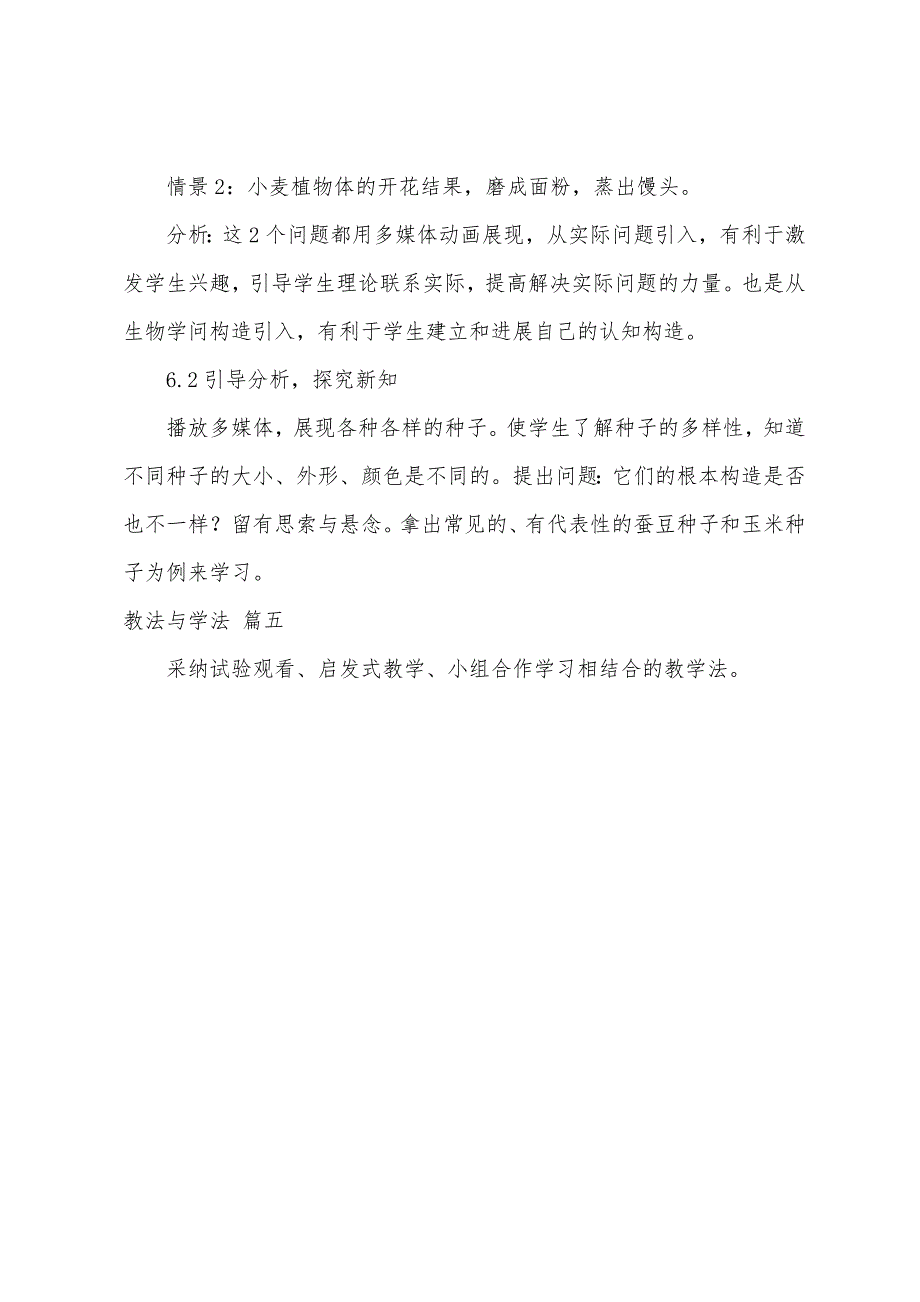 情景2：小麦植物体的开花结果，磨成面粉，蒸出馒头。
分析：这2个问题都用多媒体动画展现，从实际问题引入，有利于激
发学生兴趣，引导学生理论联系实际，提高解决实际问题的力量。也是从
生物学问构造引入，有利于学生建立和进展自己的认知构造。
6.2引导分析，探究新知
播放多媒体，展现各种各样的种子。使学生了解种子的多样性，知道
不同种子的大小、外形、颜色是不同的。提出问题：它们的根本构造是否
也不一样？留有思索与悬念。拿出常见的、有代表性的蚕豆种子和玉米种
子为例来学习。
教法与学法 篇五
采纳试验观看、启发式教学、小组合作学习相结合的教学法。